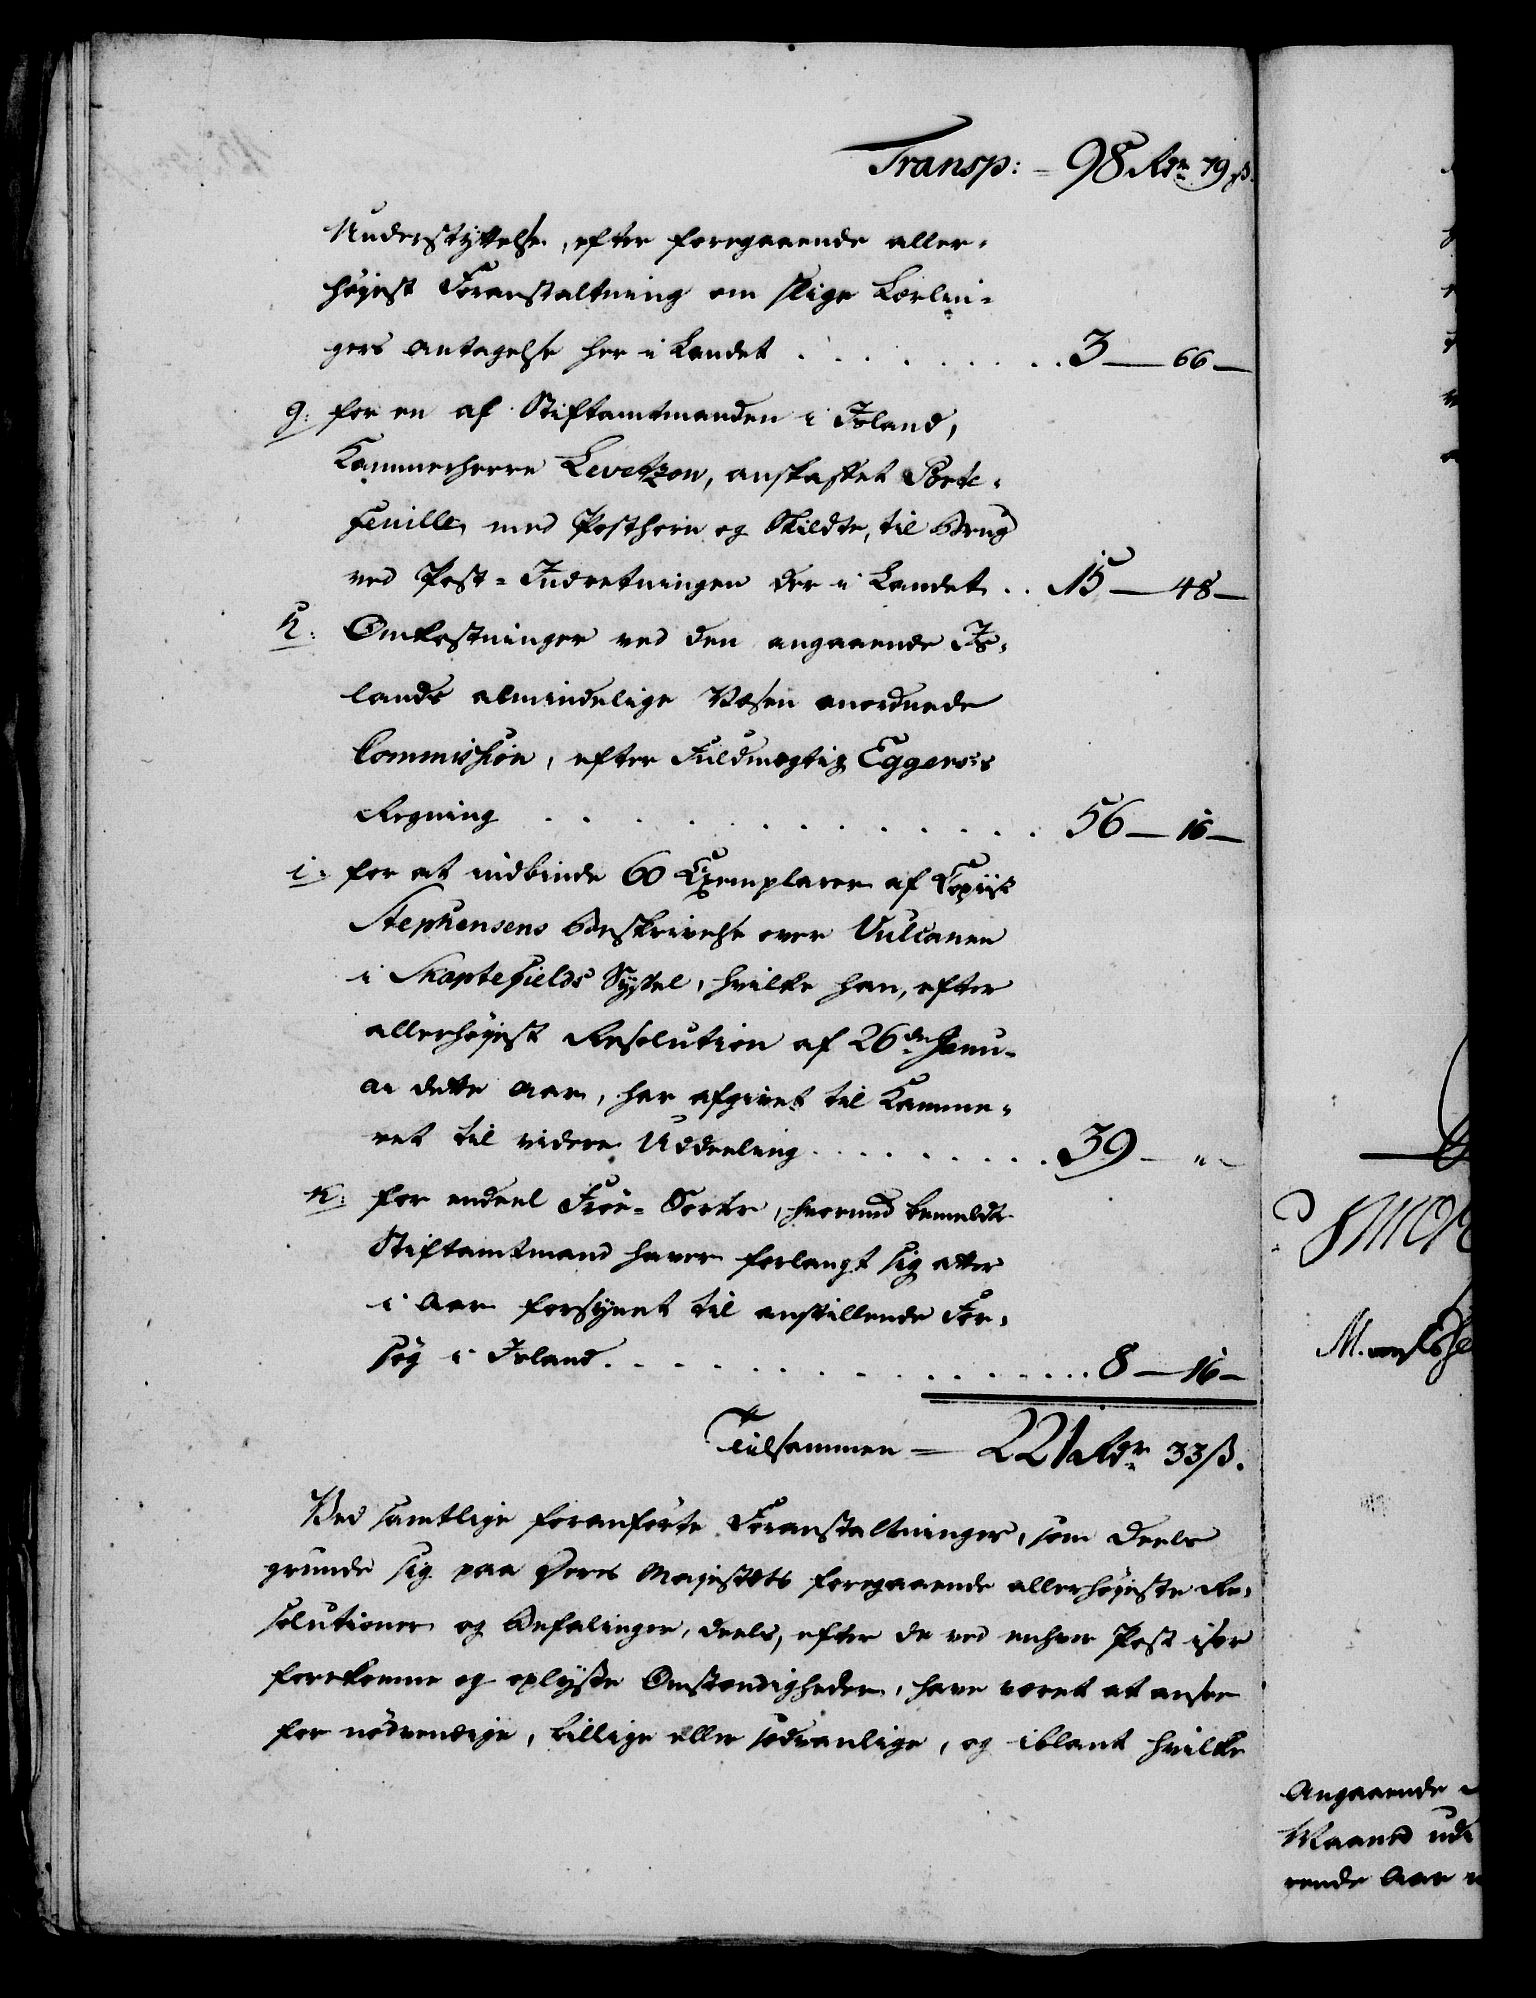 Transp: = 98 Rdr 79 ß.
Understøttelse, efter foregaaende aller-
høyest Foranstaltning om slige Lærlin-
gers antagelse her i Landet . . . . . . . 3 — 66 —
g: for en af Stiftamtmanden i Island,
Kammerherre Levetzon, anskaffet Porte-
feuille, med Posthorn og Skildte, til Brug
ved Post-Indretningen der i Landet . . 15 — 48 —
h: Omkostninger ved den angaaende Is-
lands almindelige Væsen anordnede
Commission, efter Fuldmægtig Eggers's
Regning . . . . . . . . . 56 — 16 —
i: for at indbinde 60 Exemplarer af Copiist
Stephensens Beskrivelse over Vulcanen
i Skaptefields Syssel, hvilke han, efter
allerhøyest Resolution af 26de Janu-
ar dette Aar, har afgivet til Kamme-
ret til videre Uddeeling . . . . . . . . 39 — " —
k: for endeel Frøe-Sorter, hvormed bemeldte
Stiftamtmand haver forlangt sig atter
i Aar forsynet til anstillende For-
søg i Island . . . . . . . . . . 8 — 16 —
Tilsammen = 221 Rdr 33 ß.
Ved samtlige foranførte Foranstaltninger, som deels
grunde sig paa Deres Majestæts foregaaende allerhøyeste Re-
solutioner og Befalinger, deels, efter de ved enhver Post især
forekomne og oplyste Omstændigheder, have været at ansee
for nødvendige, billige eller sædvanlige, og iblant hvilke
Angaaende
Maaned ud-
rende Aar